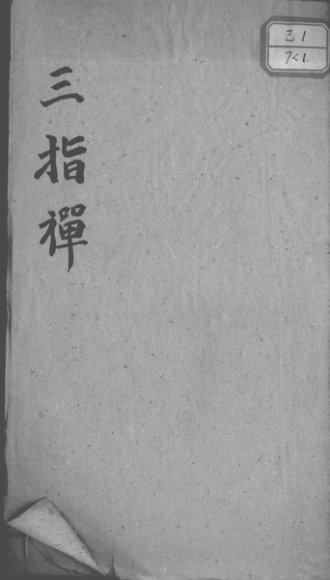 三指禪
己1
7<1